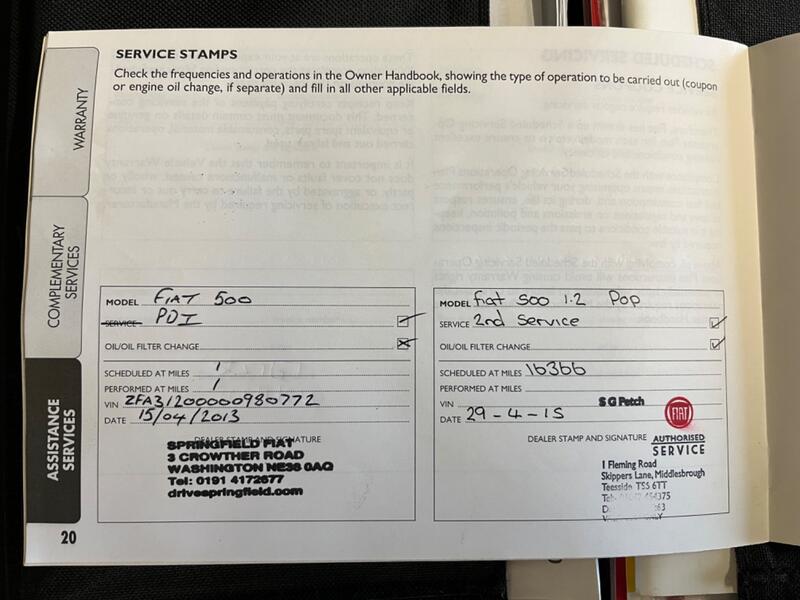 SERVICE STAMPS
Check the frequencies and operations in the Owner Handbook, showing the type of operation to be carried out (coupon
or engine oil change, if separate) and fill in all other applicable fields.
WARRANTY
COMPLEMENTARY
SERVICES
ASSISTANCE
SERVICES
MODEL FIAT 500
SERVICE PDI
OIL/OIL FILTER CHANGE
SCHEDULED AT MILES 1
PERFORMED AT MILES 1
VIN ZFA31200000980772
DATE 15/04/2013
DEALER STAMP AND SIGNATURE
SPRINGFIELD FIAT
3 CROWTHER ROAD
WASHINGTON NE38 0AQ
Tel: 0191 4172677
drivespringfield.com
MODEL Fiat 500 1.2 Pop
SERVICE 2nd Service
OIL/OIL FILTER CHANGE
SCHEDULED AT MILES 16366
PERFORMED AT MILES
VIN
S G Petch
FIAT
DATE 29-4-15
DEALER STAMP AND SIGNATURE
AUTHORISED
SERVICE
1 Fleming Road
Skippers Lane, Middlesbrough
Teesside TS5 6TT
20